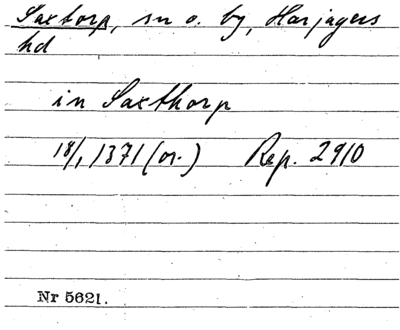 Saxtorp, sn o. by, Harjagers
hd
in Saxthorp
18/1 1371 (or.) Rep. 2910
Nr 5621.